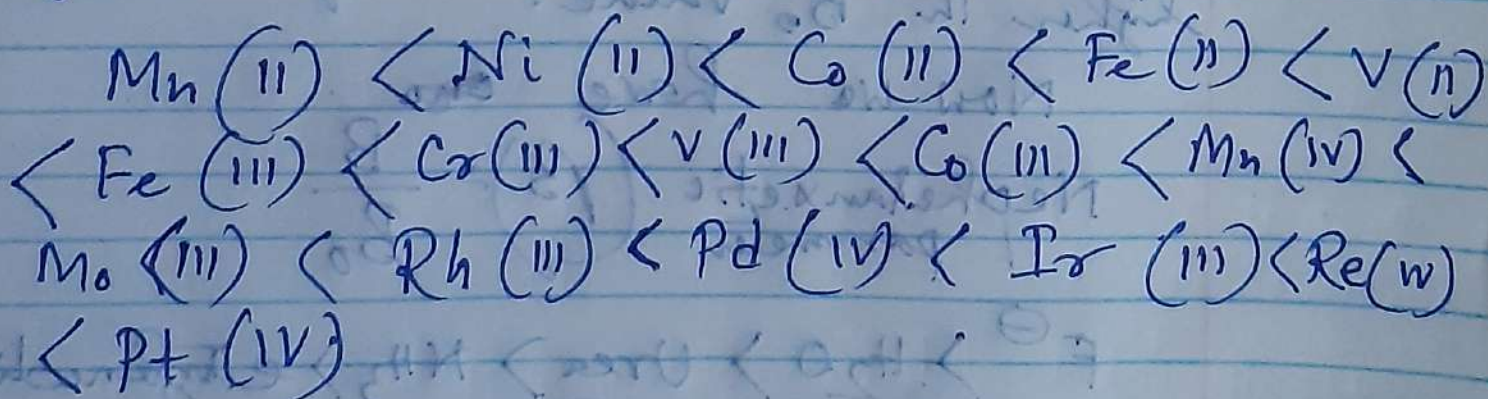 Mn (II) < Ni (II) < Co (II) < Fe (II) < V (II)
< Fe (III) < Cr (III) < V (III) < Co (III) < Mn (IV) <
Mo (III) < Rh (III) < Pd (IV) < Ir (III) < Re (IV)
< Pt (IV)